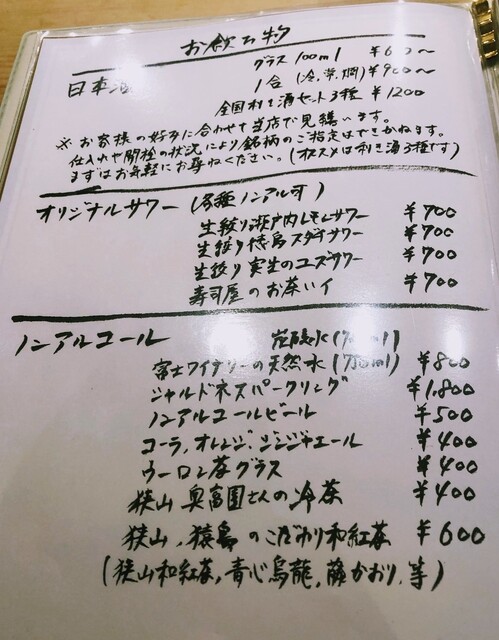 お飲み物
日本酒
グラス 100ml ¥600〜
1合(冷,常,燗) ¥900〜
全国利き酒セット3種 ¥1200
※お客様の好みに合わせて当店で見繕います。
仕入れや開栓の状況により銘柄のご指定はできかねます。
まずはお気軽にお尋ねください。(オススメは利き酒3種です)
オリジナルサワー (各種ノンアル可)
生絞り瀬戸内レモンサワー ¥700
生絞り徳島スダチサワー ¥700
生絞り実生のユズサワー ¥700
寿司屋のお茶ハイ ¥700
ノンアルコール
炭酸水
富士ワイナリーの天然水 (780ml) ¥800
シャルドネスパークリング ¥1,800
ノンアルコールビール ¥500
コーラ,オレンジ,ジンジャエール ¥400
ウーロン茶グラス ¥400
狭山 奥富園さんの冷茶 ¥400
狭山,猿島のこだわり和紅茶 ¥600
(狭山和紅茶,青心烏龍,藤かおり,等)